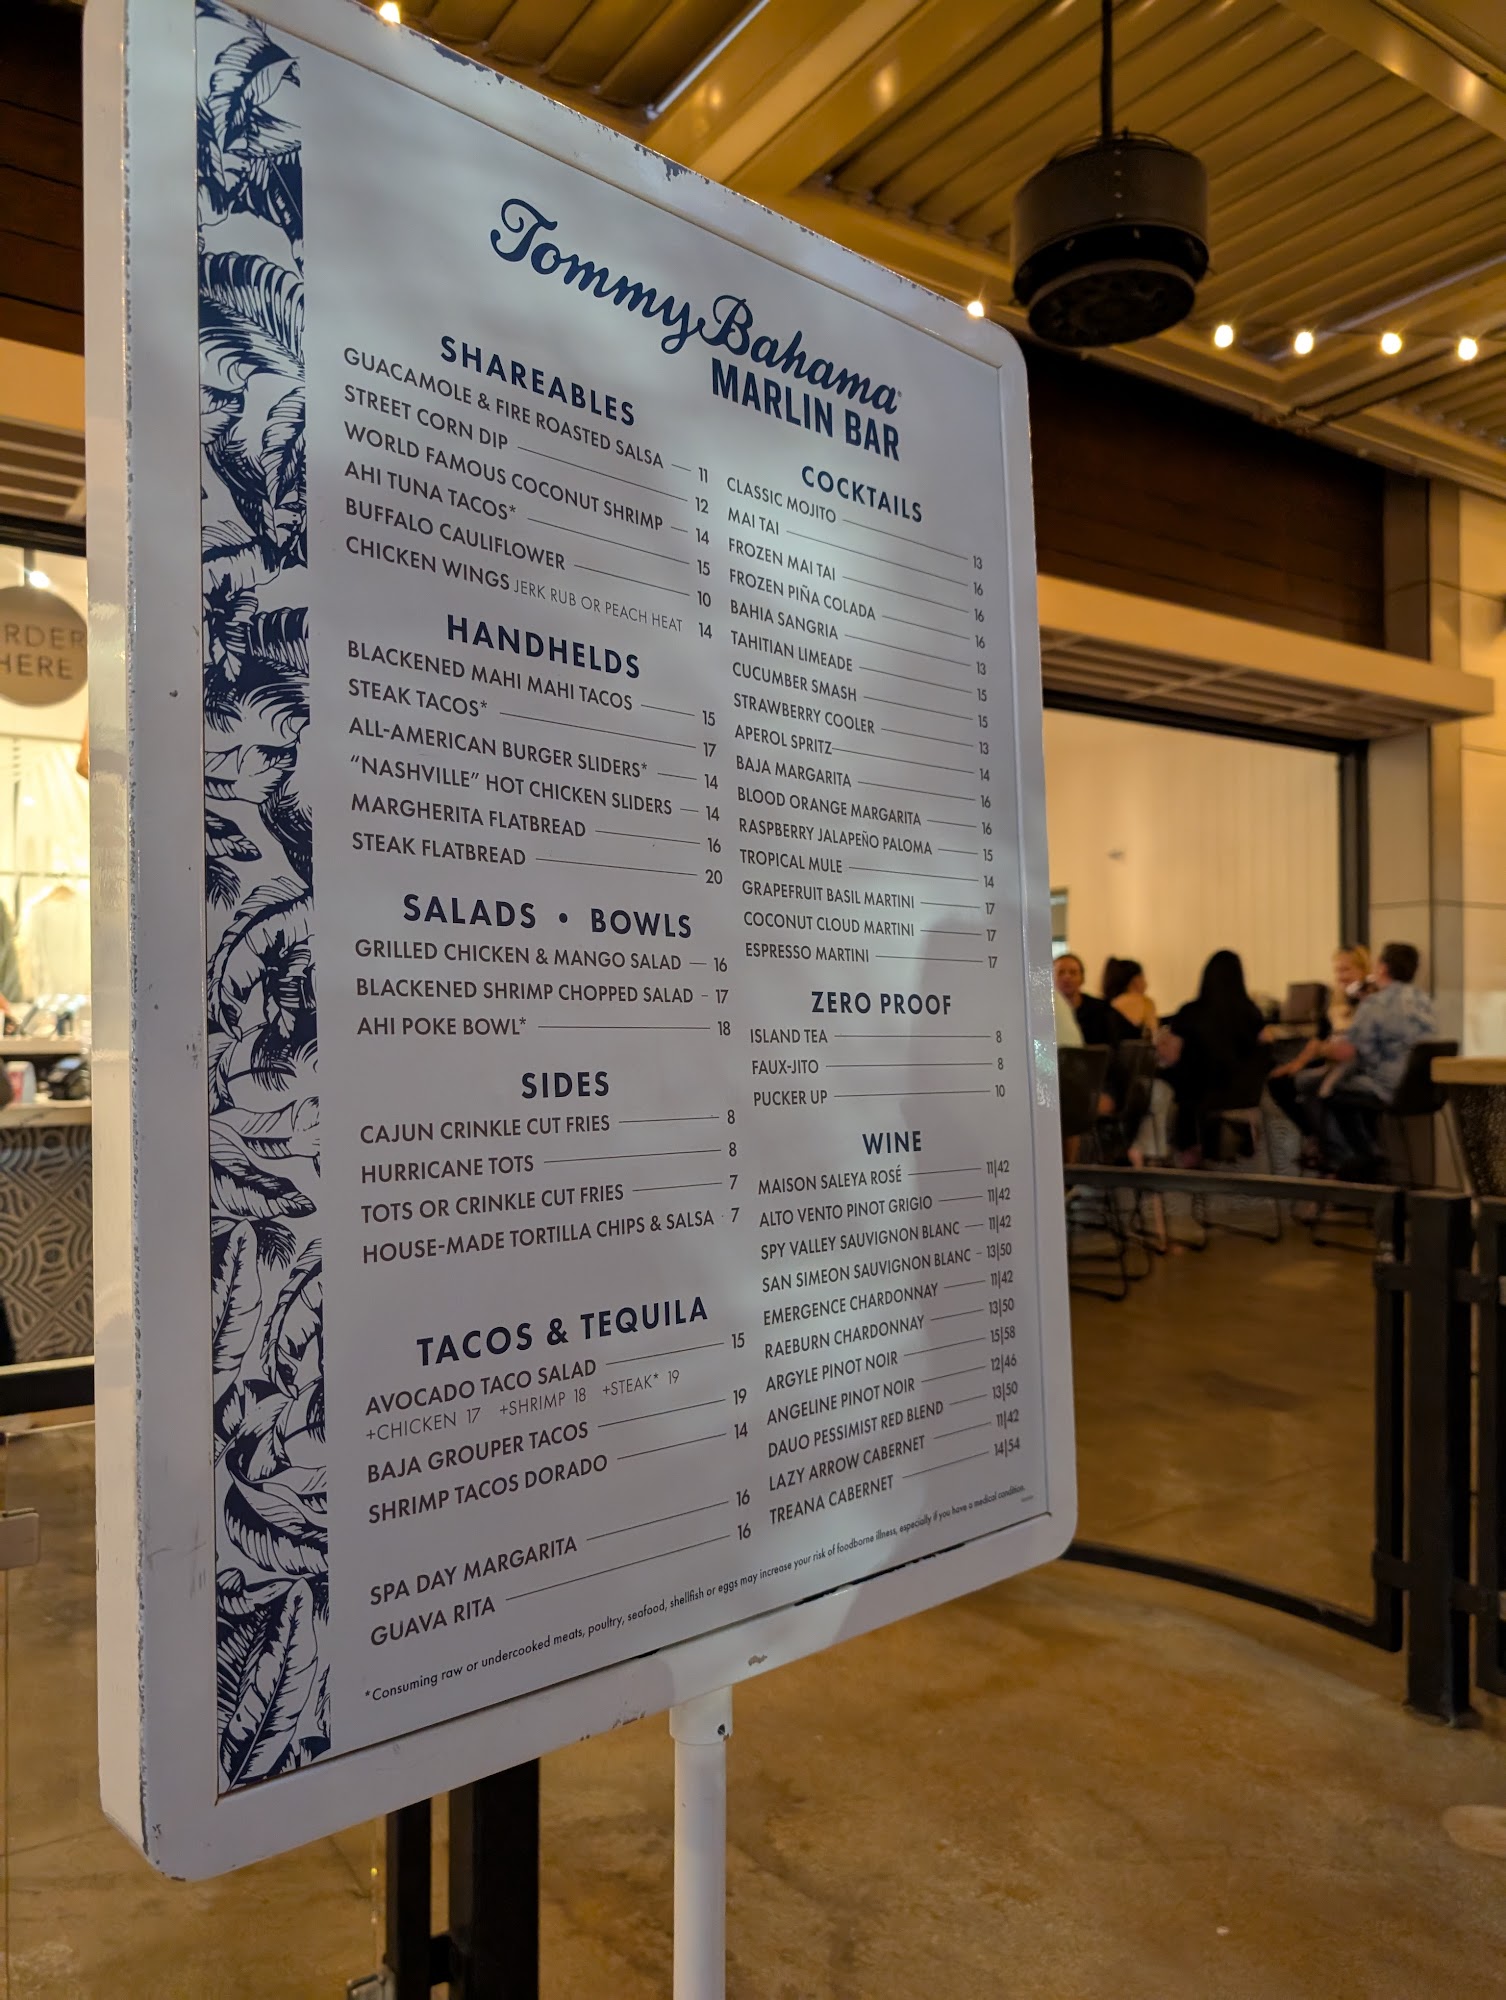 Tommy Bahama
MARLIN BAR
SHAREABLES
GUACAMOLE & FIRE ROASTED SALSA 11
STREET CORN DIP 12
WORLD FAMOUS COCONUT SHRIMP 14
AHI TUNA TACOS* 15
BUFFALO CAULIFLOWER 10
CHICKEN WINGS JERK RUB OR PEACH HEAT 14
HANDHELDS
BLACKENED MAHI MAHI TACOS 15
STEAK TACOS* 17
ALL-AMERICAN BURGER SLIDERS* 14
“NASHVILLE” HOT CHICKEN SLIDERS 14
MARGHERITA FLATBREAD 16
STEAK FLATBREAD 20
SALADS • BOWLS
GRILLED CHICKEN & MANGO SALAD 16
BLACKENED SHRIMP CHOPPED SALAD 17
AHI POKE BOWL* 18
SIDES
CAJUN CRINKLE CUT FRIES 8
HURRICANE TOTS 8
TOTS OR CRINKLE CUT FRIES 7
HOUSE-MADE TORTILLA CHIPS & SALSA 7
TACOS & TEQUILA
AVOCADO TACO SALAD 15
+CHICKEN 17 +SHRIMP 18 +STEAK* 19
BAJA GROUPER TACOS 19
SHRIMP TACOS DORADO 14
SPA DAY MARGARITA 16
GUAVA RITA 16
COCKTAILS
CLASSIC MOJITO 13
MAI TAI 16
FROZEN MAI TAI 16
FROZEN PIÑA COLADA 16
BAHIA SANGRIA 13
TAHITIAN LIMEADE 15
CUCUMBER SMASH 15
STRAWBERRY COOLER 13
APEROL SPRITZ 14
BAJA MARGARITA 16
BLOOD ORANGE MARGARITA 16
RASPBERRY JALAPEÑO PALOMA 15
TROPICAL MULE 14
GRAPEFRUIT BASIL MARTINI 17
COCONUT CLOUD MARTINI 17
ESPRESSO MARTINI 17
ZERO PROOF
ISLAND TEA 8
FAUX-JITO 8
PUCKER UP 10
WINE
MAISON SALEYA ROSÉ 11|42
ALTO VENTO PINOT GRIGIO 11|42
SPY VALLEY SAUVIGNON BLANC 11|42
SAN SIMEON SAUVIGNON BLANC 13|50
EMERGENCE CHARDONNAY 11|42
RAEBURN CHARDONNAY 13|50
ARGYLE PINOT NOIR 15|58
ANGELINE PINOT NOIR 12|46
DAUO PESSIMIST RED BLEND 13|50
LAZY ARROW CABERNET 11|42
TREANA CABERNET 14|54
*Consuming raw or undercooked meats, poultry, seafood, shellfish or eggs may increase your risk of foodborne illness, especially if you have a medical condition.
RDER
HERE